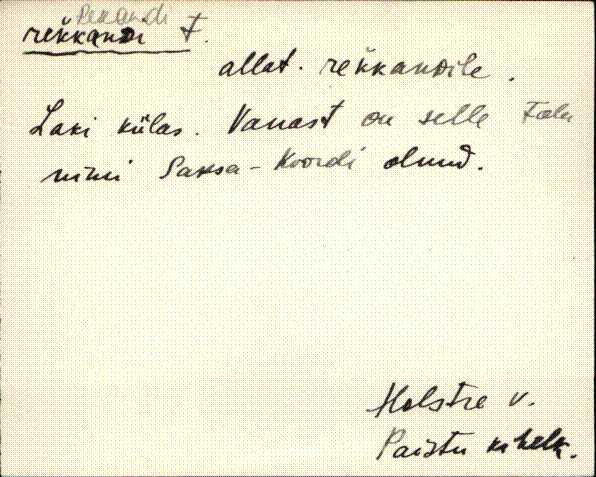 Rekandi
rekkandi T.
allat. rekkandile.
Laki külas. Vanast on selle talu
nimi Saksa-Koordi olnud.
Holstre v.
Paistu kihelk.